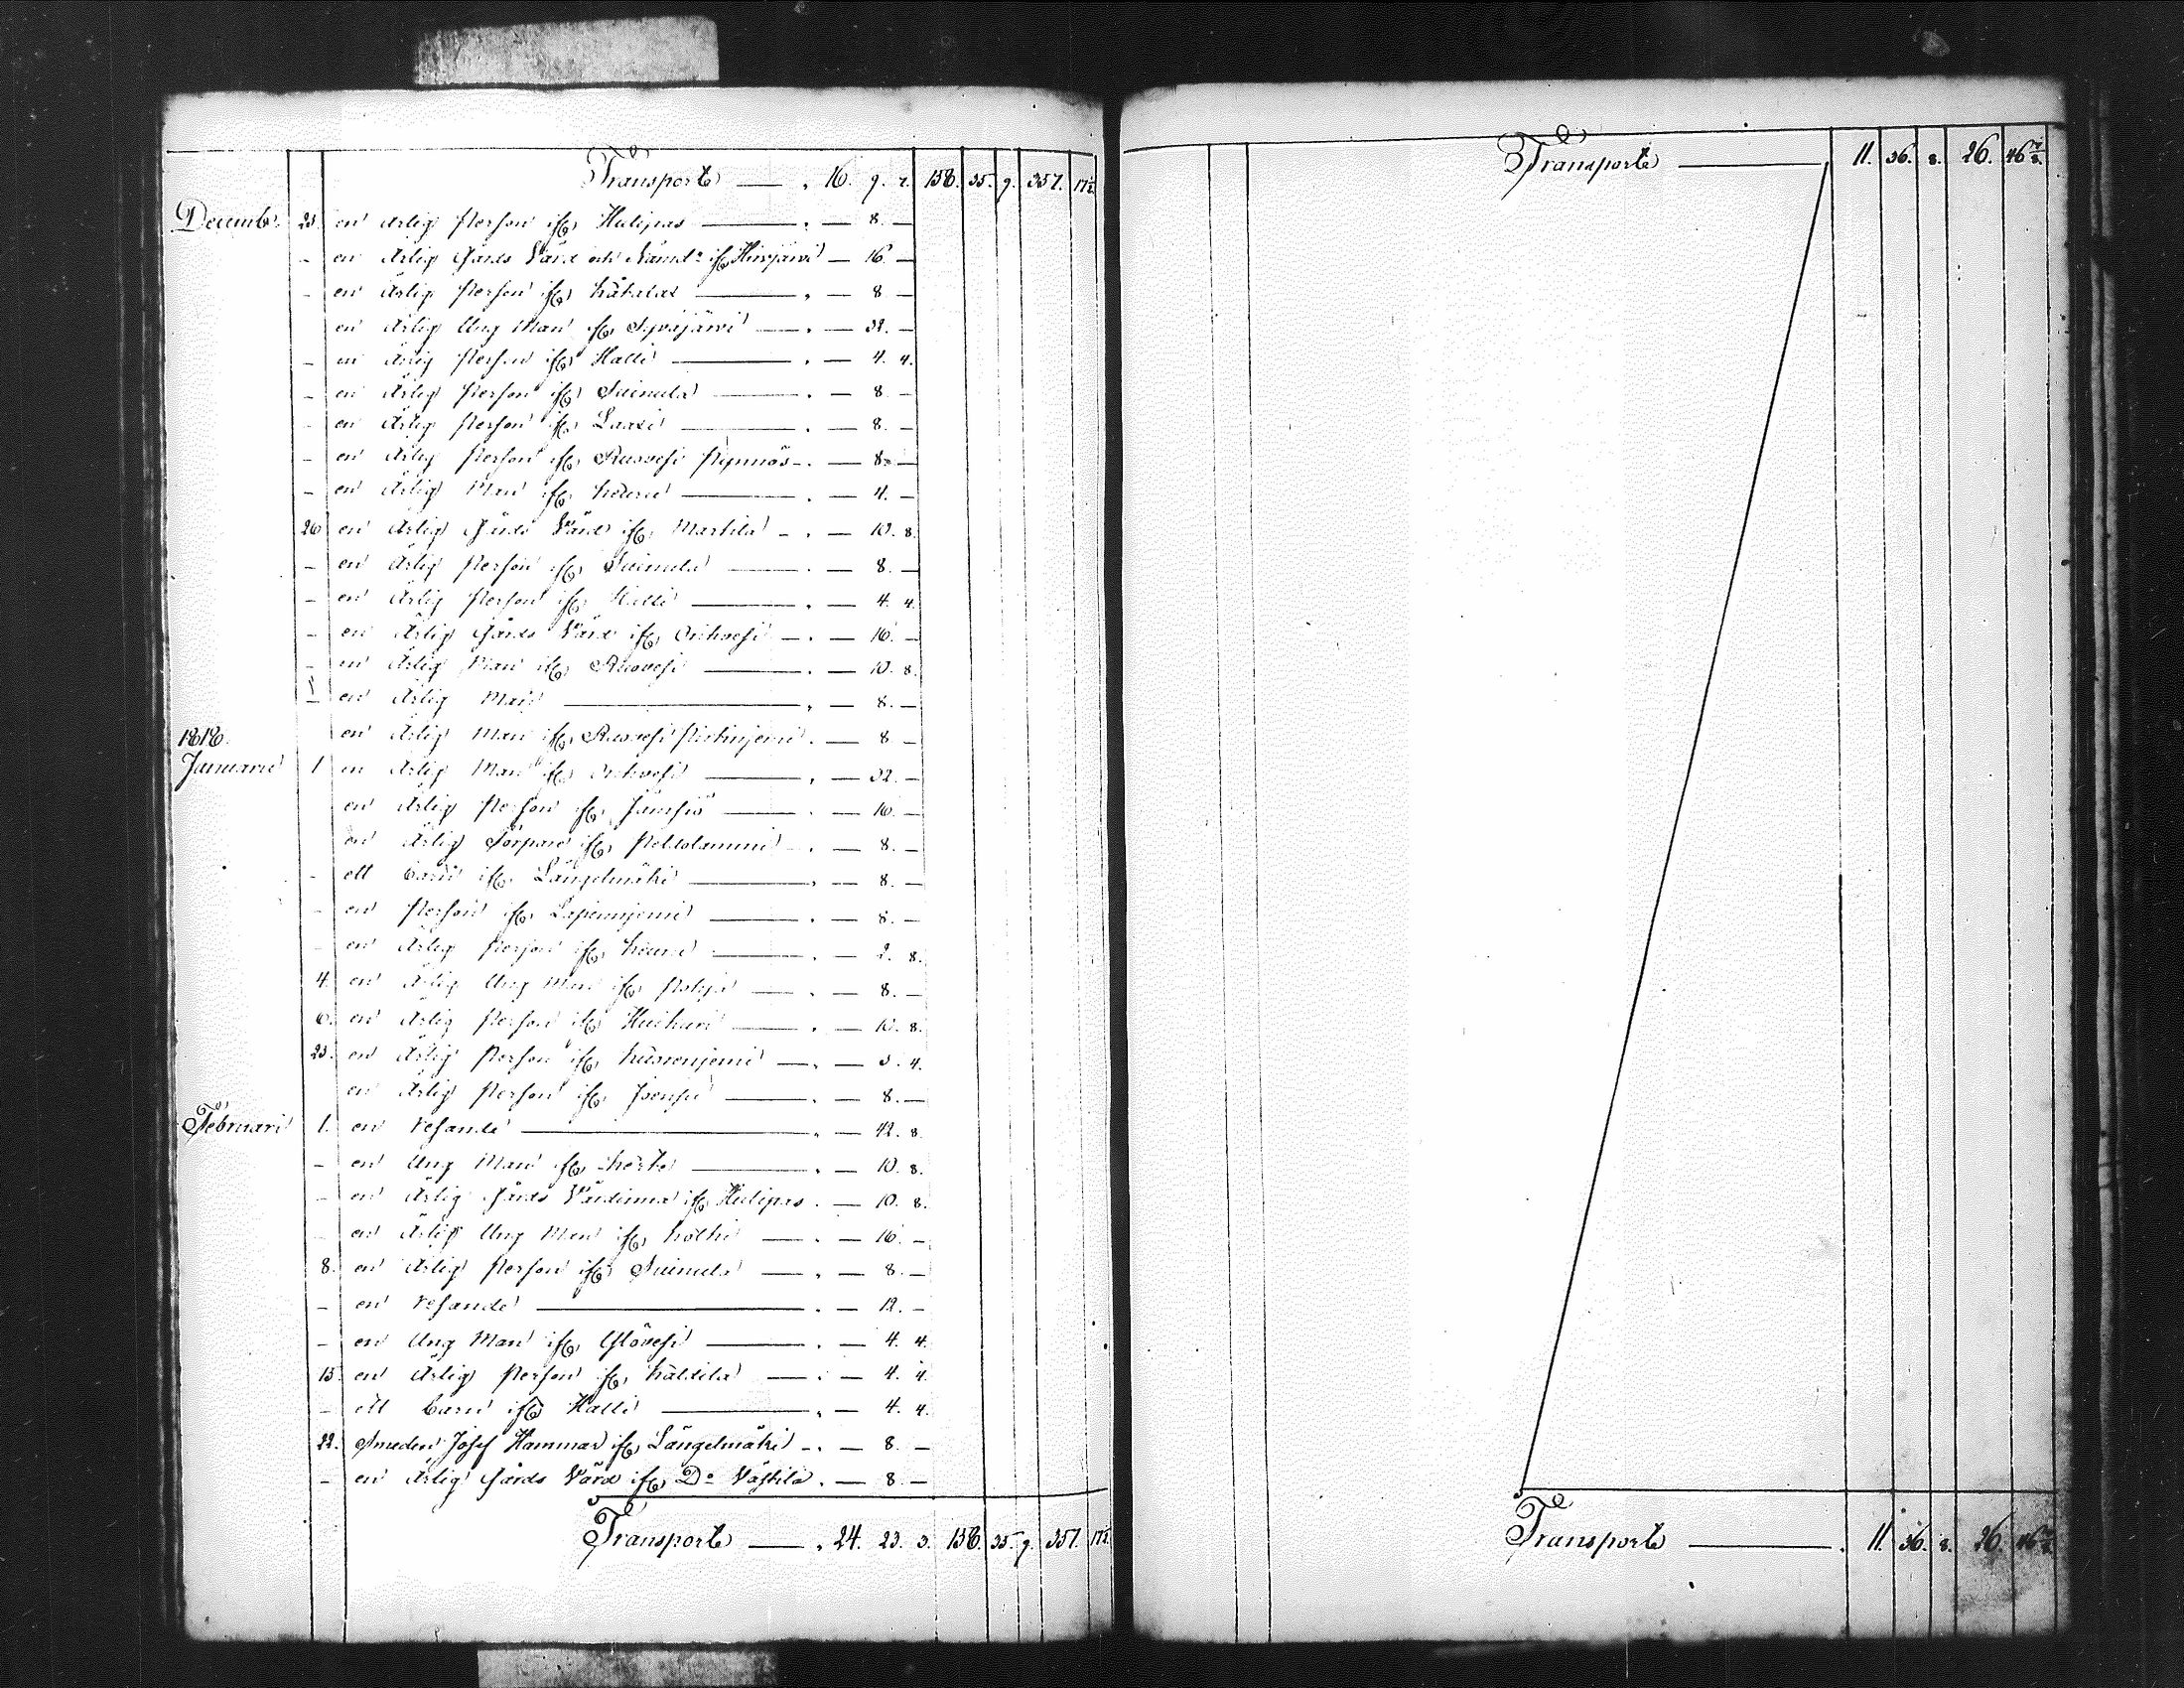 Transport — " 16. 9. 7. 158. 35. 9. 357. 17½
Decemb. 25 en Ärlig Person ifr. Hulipas — " — 8. —
- en Ärlig Gårds Värd och Nämd: ifr. Hirvjärvi — 16 —
- en Ärlig Person ifr. — " — 8 —
en Ärlig Ung Man ifr. Syväjärvi — " — 32. —
- en Ärlig Person ifr. Halli — " — 4. 4.
- en Ärlig Person ifr. Suinula — " — 8 —
- en Ärlig Person ifr. — " — 8. —
- en Ärlig Person ifr. Ruovesi Pynnös — " — 8. —
- en Ärlig Man ifr. — " — 4. —
26 en Ärlig Gårds Värd ifr. Martila — " — 10. 8.
- en Ärlig Person ifr. Suinula — " — 8. —
- en Ärlig Person ifr. Halli — " — 4. 4.
- en Ärlig Gårds Värd ifr. Orihvesi — " — 16. —
- en Ärlig Man ifr. Ruovesi — " — 10. 8.
- en Ärlig Man — " — 8. —
1818. en Ärlig Man ifr. Ruovesi — 8 —
Januarii 1 en Ärlig Man ifr. Orihvesi — " — 32. —
en Ärlig Person ifr. Jämsiö — " — 16. —
en Ärlig Torpare ifr. Peldolammi — " — 8. —
- ett barn ifr. Längelmäki — " — 8. —
- en Person ifr. — " — 8. —
- en Ärlig Person ifr. — " — 2. 8.
4. en Ärlig Ung Man ifr. Pohja — " — 8. —
6. en Ärlig Person ifr. Huihari — " — 10. 8.
25. en Ärlig Person ifr. — " — 5. 4.
en Ärlig Person ifr. — " — 8. —
Februari 1. en Resande — " — 42. 8.
- en Ung Man ifr. — " — 10. 8.
- en Ärlig Gårds Värdinna ifr. Hulipas " — 10. 8.
- en Ärlig Ung Man ifr. — " — 16. —
8. en Ärlig Person ifr. Suinula — " — 8. —
- en Resande — " — 12. —
- en Ung Man ifr. — " — 4. 4.
15. en Ärlig Person ifr. — " — 4. 4.
- ett barn ifr. Halli — " — 4. 4.
22. Smeden Josef Hammar ifr. Längelmäki — " — 8. —
- en Ärlig Gårds Värd ifr. D:o Västila " — 8. —
Transport — " 24. 23. 3. 158. 35. 9. 357. 17½
Transport — 11. 36. 8. 26. 46
Transport — " 11. 36. 8. 26. 46